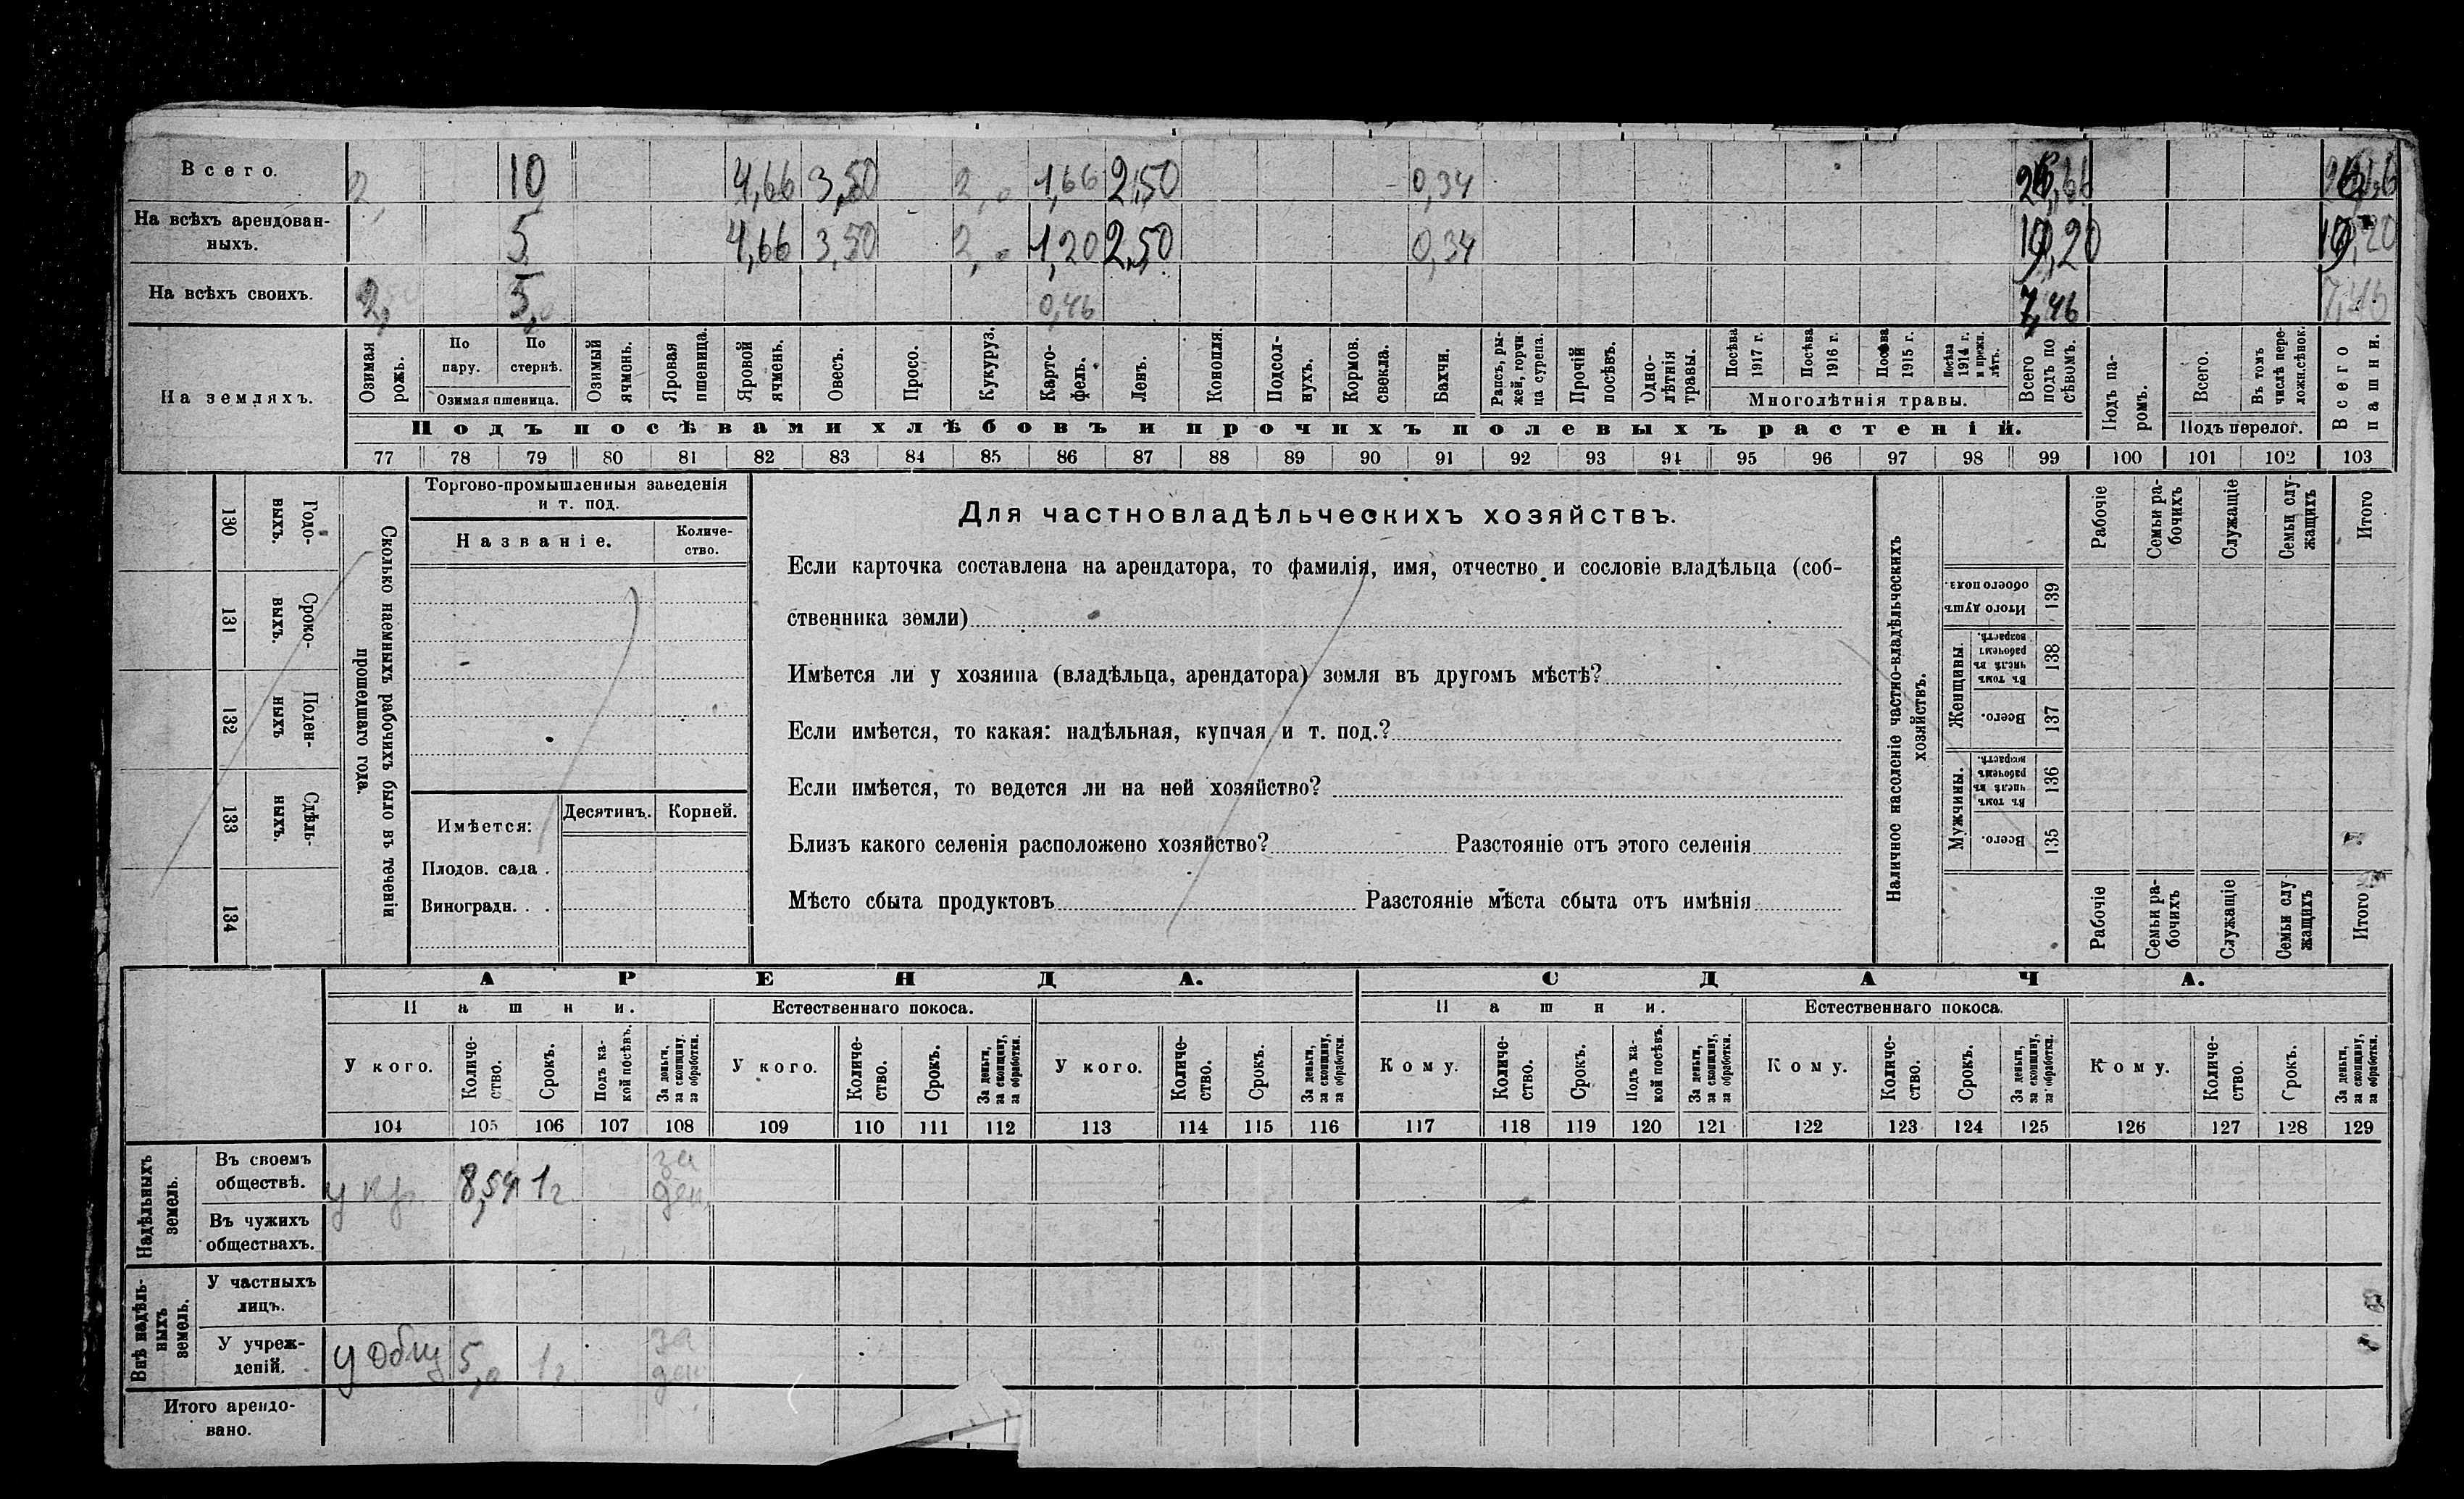 Всего. 2, 10 4,66 3,50 2,0 1,66 2,50 0,34
На всѣхъ арендован-
ныхъ. 5 4,66 3,50 2,0 1,20 2,50 0,34 19,20
На всѣхъ своихъ. 2, 5,0 0,46 7,46 7,46
На земляхъ.
Озимая рожь.
По пару.
По стернѣ.
Озимая пшеница.
Озимый ячмень.
Яровая пшеница.
Яровой ячмень.
Овесъ.
Просо.
Кукуруз.
Карто-
фель.
Ленъ.
Конопля.
Подсол-
нухъ.
Кормов. свекла.
Бахчи.
Рапсъ, ры-
жей, горчи-
ца сурепа.
Прочій посѣвъ.
Одно-
лѣтнія травы.
Посѣва 1917 г.
Посѣва 1916 г.
Посѣва 1915 г.
Посѣва 1914 г. и прежн. лѣтъ.
Многолѣтнія травы.
Всего подъ по
сѣвомъ.
Подъ па-
ромъ.
Всего.
Въ томъ числѣ пере-
ложн.сѣнок.
Подъ перелог.
Всего пашни.
Подъ посѣвами хлѣбовъ и прочихъ полевыхъ растеній.
77 78 79 80 81 82 83 84 85 86 87 88 89 90 91 92 93 94 95 96 97 98 99 100 101 102 103
130 Годо-
выхъ.
131 Сроко-
выхъ.
132 Поден-
ныхъ
133 Сдѣль-
ныхъ.
134
Сколько наемныхъ рабочихъ было въ теченіи
прошедшаго года.
Торгово-промышленныя заведенія
и т. под.
Названіе.
Количе-
ство.
Имѣется:
Десятинъ.
Корней.
Плодов. сада .
Виноградн. . .
Для частновладѣльческихъ хозяйствъ.
Если карточка составлена на арендатора, то фамилія, имя, отчество и сословіе владѣльца (соб-
ственника земли)
Имѣется ли у хозяина (владѣльца, арендатора) земля въ другомъ мѣстѣ?
Если имѣется, то какая: надѣльная, купчая и т. под.?
Если имѣется, то ведется ли на ней хозяйство?
Близъ какого селенія расположено хозяйство? Разстояніе отъ этого селенія
Мѣсто сбыта продуктовъ Разстояніе мѣста сбыта отъ имѣнія
Наличное населеніе частно-владѣльческихъ
хозяйствъ.
Рабочіе
Семьи ра-
бочихъ
Служащіе
Семьи слу-
жащихъ
Итого
Итого душъ обоего пола. 139
Женщины.
Въ томъ числѣ въ рабочемъ возрастѣ. 138
Всего. 137
Мужчины.
Въ томъ числѣ въ рабочемъ возрастѣ. 136
Всего. 135
Рабочіе
Семьи ра-
бочихъ
Служащіе
Семьи слу
жащихъ
Итого
АРЕНДА.
СДАЧА.
Пашни.
Естественнаго покоса.
Пашни.
Естественнаго покоса.
У кого.
Количе-
ство.
Срокъ.
Подъ ка-
кой посѣвъ.
За деньги, за скопщину, за обработки.
У кого.
Количе-
ство.
Срокъ.
За деньги, за скопщину, за обработки.
У кого.
Количе-
ство.
Срокъ.
За деньги, за скопщину, за обработки.
Кому.
Количе-
ство.
Срокъ.
Подъ ка-
кой посѣвъ.
За деньги, за скопщину, за обработки.
Кому.
Количе-
ство.
Срокъ.
За деньги, за скопщину, за обработки.
Кому.
Количе-
ство.
Срокъ.
За деньги, за скопщину, за обработки.
104 105 106 107 108 109 110 111 112 113 114 115 116 117 118 119 120 121 122 123 124 125 126 127 128 129
Надѣльныхъ
земель.
Въ своемъ
обществѣ. у кр. 8,54 1г за ден.
Въ чужихъ
обществахъ.
Внѣ надѣль-
ныхъ
земель.
У частныхъ
лицъ.
У учреж-
деній. у Общ 5,0 1г за ден
Итого арендо-
вано.